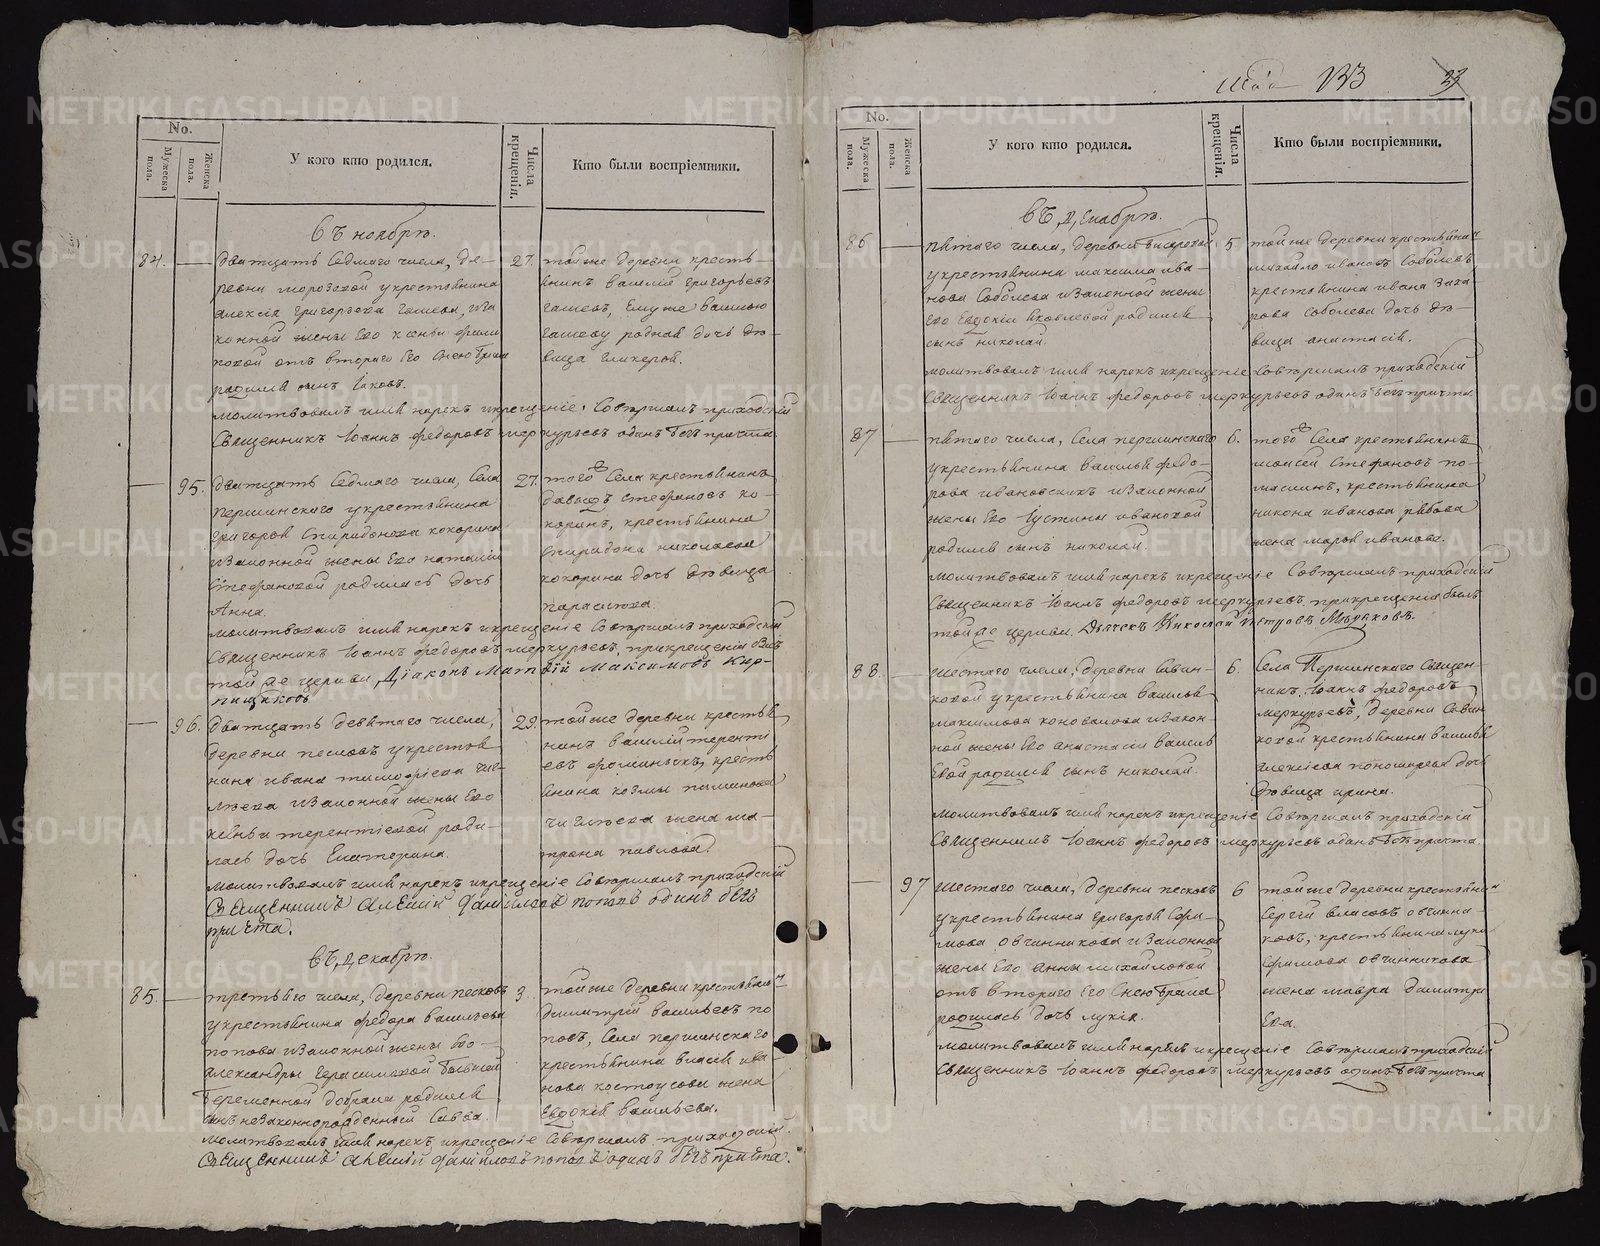 No.
Мужеска пола.
Женска пола.
У кого кто родился.
Числа крещенія.
Кто были воспріемники.
въ ноябрѣ.
84.
дватцать седмаго числа, де-
ревни морозовой укрестьянина
алексѣя григорьева
конной жены его
вой отъ втораго его
родился сынъ Іаковъ.
27.
тойже деревни кресть-
янинъ василей григорьевъ
родная дочь дѣ-
вица гликерія.
молитвовалъ имя нарекъ икрещеніе совершалъ приходскій
священникъ Іоаннъ федоровъ меркурьевъ одинъ безъ причта.
95.
дватцать седмаго числа, села
першинскаго укрестьянина
григорья спиридонова кокорина
изаконной жены его наталіи
стефановой родилась дочь
Анна.
27.
того села крестьянинъ
давыдъ стефановъ ко-
коринъ, крестьянина
спиридона николаева
кокорина дочь дѣвица
параскева.
молитвовалъ имя нарекъ икрещеніе совершалъ приходскій
священникъ Іоаннъ федоровъ меркурьевъ, прикрещеніи былъ
той же церкви, Діаконъ Матвій Максимовъ Кир-
пищиковъ
96.
дватцать девятаго числа,
деревни песковъ укрестья
нина ивана тимофѣева
изаконной жены его
терентіевой роди-
лась дочь Екатерина.
29.
тойже деревни крестья
нинъ василій теренті
евъ фоминыхъ, кресть
янина козмы
жена ма-
трона павлова.
молитвовалъ имя нарекъ икрещеніе совершалъ приходскій
священникъ алексій даніиловъ поповъ одинъ безъ
причта.
въ декабрѣ.
85.
третьяго числа, деревни песковъ
укрестьянина федора васильева
попова изаконной жены его
александры герасимовой
беременной добрачно родился
сынъ незаконнорожденный Савва.
3.
тойже деревни крестьянинъ
димитрій васильевъ по
повъ, села першинскаго
крестьянина власія ива-
нова костоусова жена
Евдокія васильева.
молитвовалъ имя нарекъ икрещеніе совершалъ приходскій
священникъ алексій даніиловъ поповъ одинъ безъ причта.
133
23
No.
Мужеска пола.
Женска пола.
У кого кто родился.
Числа крещенія.
Кто были воспріемники.
въ декабрѣ.
86
пятаго числа, деревни
укрестьянина максима ива-
нова соболева изаконной жены
его Евдокіи яковлевой родился
сынъ николай.
5
тойже деревни крестьянинъ
михайло ивановъ соболевъ,
крестьянина ивана заха-
рова соболева дочь дѣ-
вица анастасія.
молитвовалъ имя нарекъ икрещеніе совершалъ приходскій
священникъ Іоаннъ федоровъ меркурьевъ одинъ безъ причта.
87
пятаго числа, села першинскаго
укрестьянина василья федо-
рова ивановскихъ изаконной
жены его Іустины ивановой
родился сынъ николай.
6.
того села крестьянинъ
моисей стефановъ по-
маскинъ, крестьянина
никона иванова рябова
жена марѳа иванова.
молитвовалъ имя нарекъ икрещеніе совершалъ приходскій
священникъ Іоаннъ федоровъ меркурьевъ, прикрещеніи былъ
той же церкви. Дьячекъ Николай Петровъ Мѣряковъ.
88.
шестаго числа, деревни савин-
ковой укрестьянина василья
максимова коновалова изакон-
ной жены его анастасіи василь
евой родился сынъ николай.
6.
Села Першинскаго священ-
никъ Іоаннъ федоровъ
меркурьевъ, деревни савин
ковой крестьянина василья
алексіева пономарева дочь
дѣвица ирина.
молитвовалъ имя нарекъ икрещеніе совершалъ приходскій
священникъ Іоаннъ федоровъ меркурьевъ одинъ безъ причта.
97
шестаго числа, деревни песковъ
укрестьянина григорья ефи-
мова овчинникова изаконной
жены его анны михайловой
отъ втораго его
родилась дочь лукія.
6
тойже деревни крестьянинъ
Сергій власовъ овчинни-
ковъ, крестьянина луки
ефимова овчинникова
жена мавра димитрі
ева.
молитвовалъ имя нарекъ икрещеніе совершалъ приходскій
священникъ Іоаннъ федоровъ меркурьевъ одинъ безъ причта.
METRIKI.GASO-URAL.RU